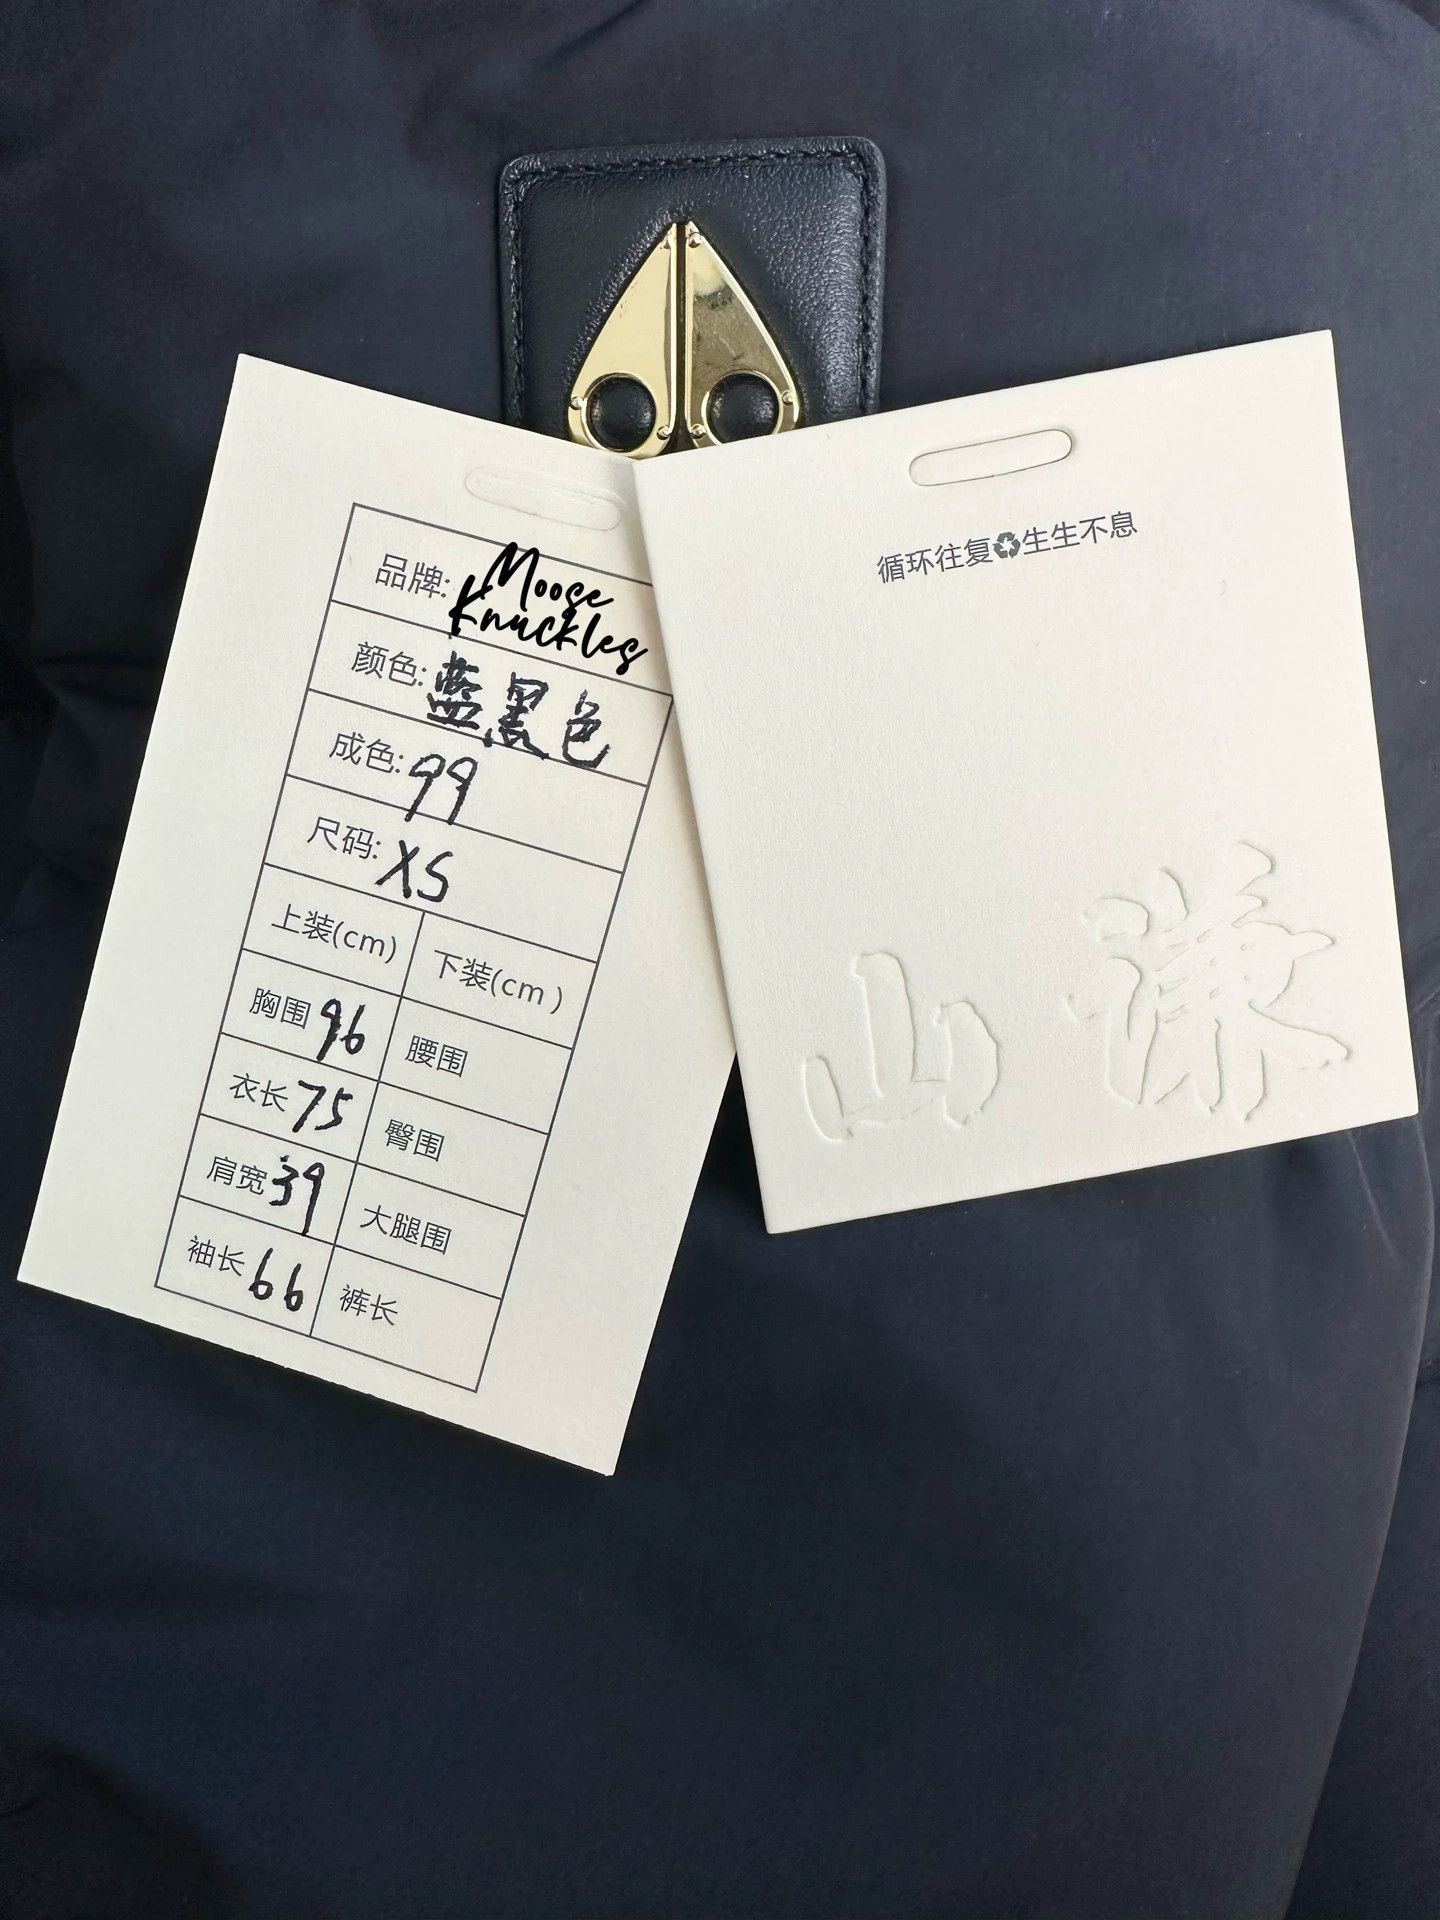 品牌: Moose Knuckles
颜色: 蓝黑色
成色: 99
尺码: XS
上装(cm) 下装(cm)
胸围 96 腰围
衣长 75 臀围
肩宽 39 大腿围
袖长 66 裤长
循环往复♻生生不息
山谦